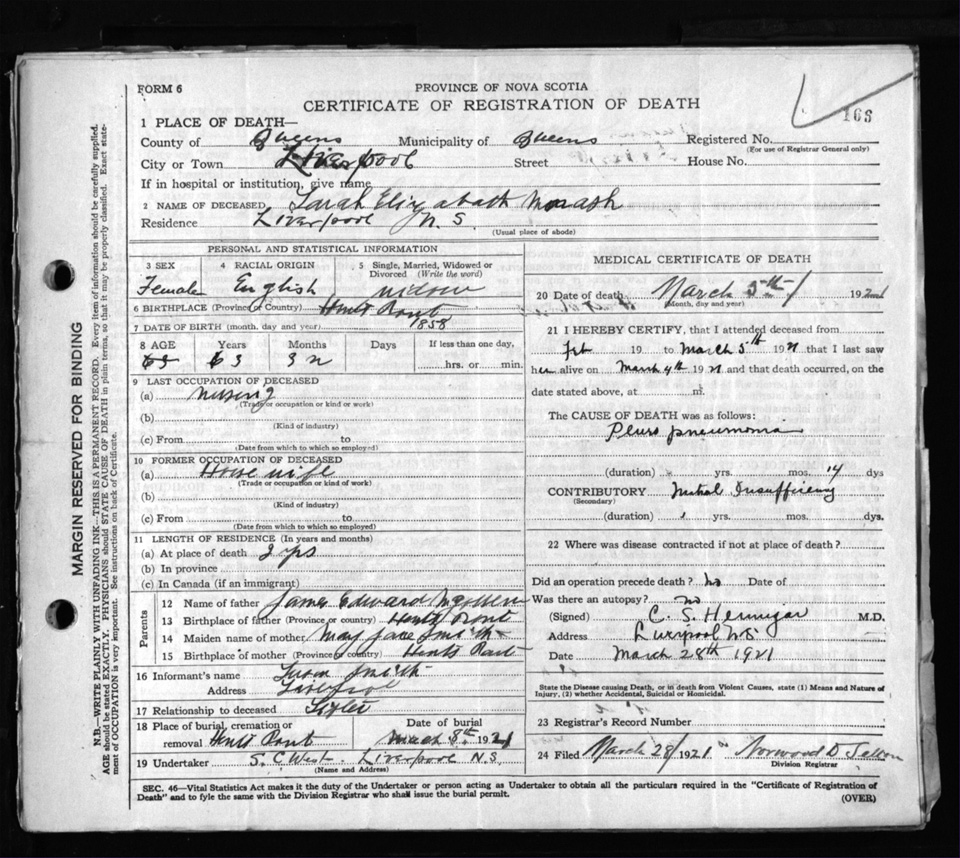 FORM 6
PROVINCE OF NOVA SCOTIA
CERTIFICATE OF REGISTRATION OF DEATH
166
1 PLACE OF DEATH—
County of Queens Municipality of Queens Registered No.
(For use of Registrar General only)
City or Town Liverpool Street House No.
If in hospital or institution, give name
2 NAME OF DECEASED Sarah Elizabeth
Residence Liverpool N. S.
(Usual place of abode)
PERSONAL AND STATISTICAL INFORMATION
3 SEX
Female
4 RACIAL ORIGIN
English
5 Single, Married, Widowed or Divorced (Write the word)
widow
6 BIRTHPLACE (Province or Country) Hunts Point
7 DATE OF BIRTH (month, day and year) 1858
8 AGE Years Months Days If less than one day,
63 hrs. or min.
9 LAST OCCUPATION OF DECEASED
(a) nursing
(Trade or occupation or kind of work)
(b)
(Kind of industry)
(c) From to
(Date from which to which so employed)
10 FORMER OCCUPATION OF DECEASED
(a) House wife
(Trade or occupation or kind of work)
(b)
(Kind of industry)
(c) From to
(Date from which to which so employed)
11 LENGTH OF RESIDENCE (In years and months)
(a) At place of death
(b) In province
(c) In Canada (if an immigrant)
Parents
12 Name of father James Edward
13 Birthplace of father (Province or country) Hunts Point
14 Maiden name of mother May Jane Smith
15 Birthplace of mother (Province or country) Hunts Point
16 Informant's name Smith
Address
17 Relationship to deceased Sister
18 Place of burial, cremation or removal Hunts Point
Date of burial
March 8th 1921
19 Undertaker S. C. West. Liverpool N.S.
(Name and Address)
MEDICAL CERTIFICATE OF DEATH
20 Date of death March 5th 1921
(Month, day and year)
21 I HEREBY CERTIFY, that I attended deceased from
19 to March 5th 1921 that I last saw
her alive on March 4th 1921 and that death occurred, on the
date stated above, at m.
The CAUSE OF DEATH was as follows:
Pleuro pneumonia
(duration) yrs. mos. 14 dys
CONTRIBUTORY Mitral Insufficiency
(Secondary)
(duration) yrs. mos. dys.
22 Where was disease contracted if not at place of death?
Did an operation precede death? no Date of
Was there an autopsy? no
(Signed) C. S. Hennigar M.D.
Address Liverpool N.S.
Date March 28th 1921
State the Disease causing Death, or in death from Violent Causes, state (1) Means and Nature of
Injury, (2) whether Accidental, Suicidal or Homicidal.
23 Registrar's Record Number
24 Filed March 28/1921. Norwood D.
Division Registrar
SEC. 46—Vital Statistics Act makes it the duty of the Undertaker or person acting as Undertaker to obtain all the particulars required in the "Certificate of Registration of
Death" and to fyle the same with the Division Registrar who shall issue the burial permit.
(OVER)
MARGIN RESERVED FOR BINDING
N.B.—WRITE PLAINLY WITH UNFADING INK—THIS IS A PERMANENT RECORD. Every item of information should be carefully supplied.
AGE should be stated EXACTLY. PHYSICIANS should STATE CAUSE OF DEATH in plain terms, so that it may be properly classified. Exact statement
of OCCUPATION is very important. See instructions on back of Certificate.